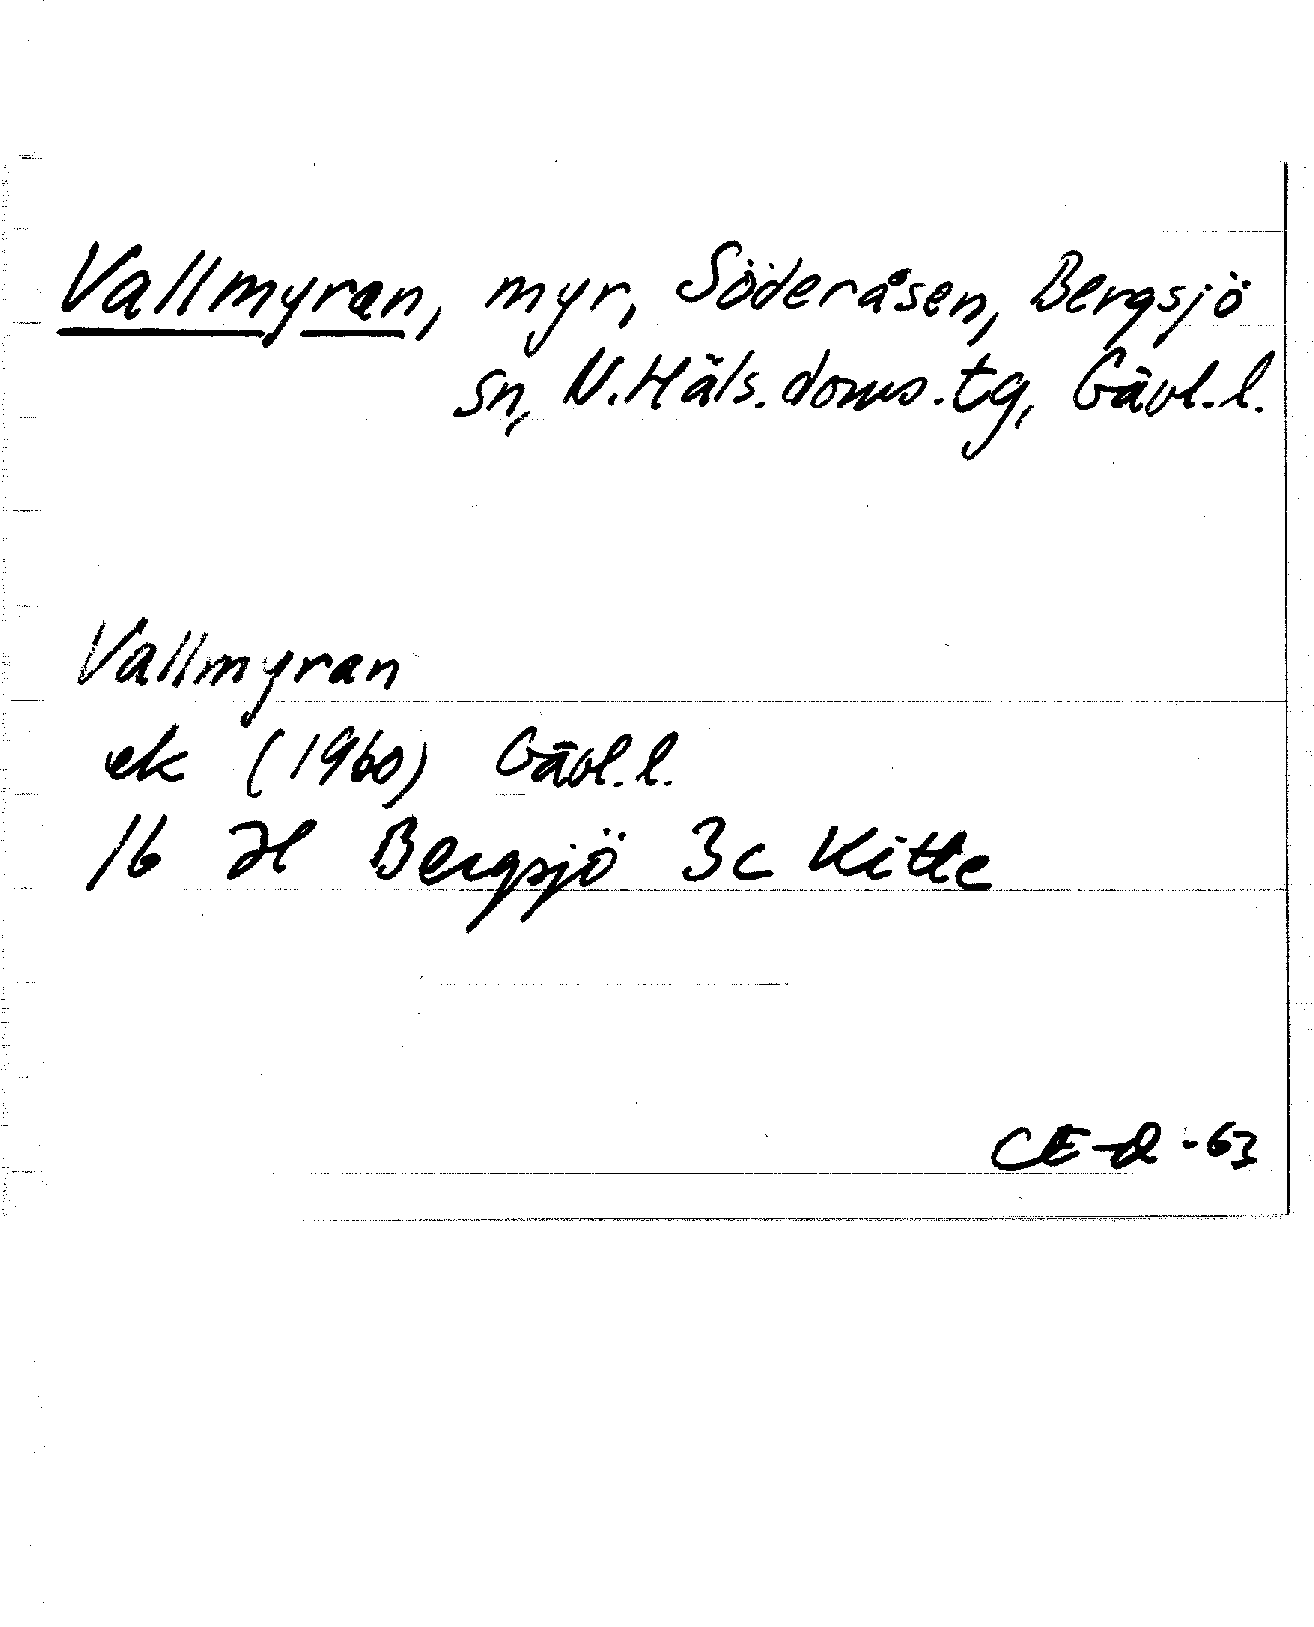 Vallmyran, myr, Söderåsen, Bergsjö
sn, N. Häls. doms. tg, Gävl. l.
Vallmyran
ek (1960) Gävl. l.
16 H Bergsjö 3c Kitte
CE-d -63